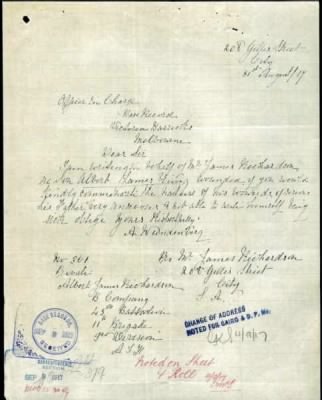 208 Gilles Street
City
31st August/17
Officer In Charge
Base Record
Victoria Barracks
Melbourne
Dear Sir
I am writing on behalf of Mr James Richardson
his Son Albert James being wounded if you would
kindly communicate the nature of his wounds of course
his Father very anxious & not able to write himself being
oblige yours
No 561
Private
Albert James Richardson
B Company
43rd Battalion
11th Brigade
3rd Division
A I F
For Mr James Richardson
208 Gilles Street
City
S. A.
CHANGE OF ADDRESS
NOTED FOR CAIRO & D.P. MR.
4/9/17
BASE RECORDS
Noted on Sheet
& Roll